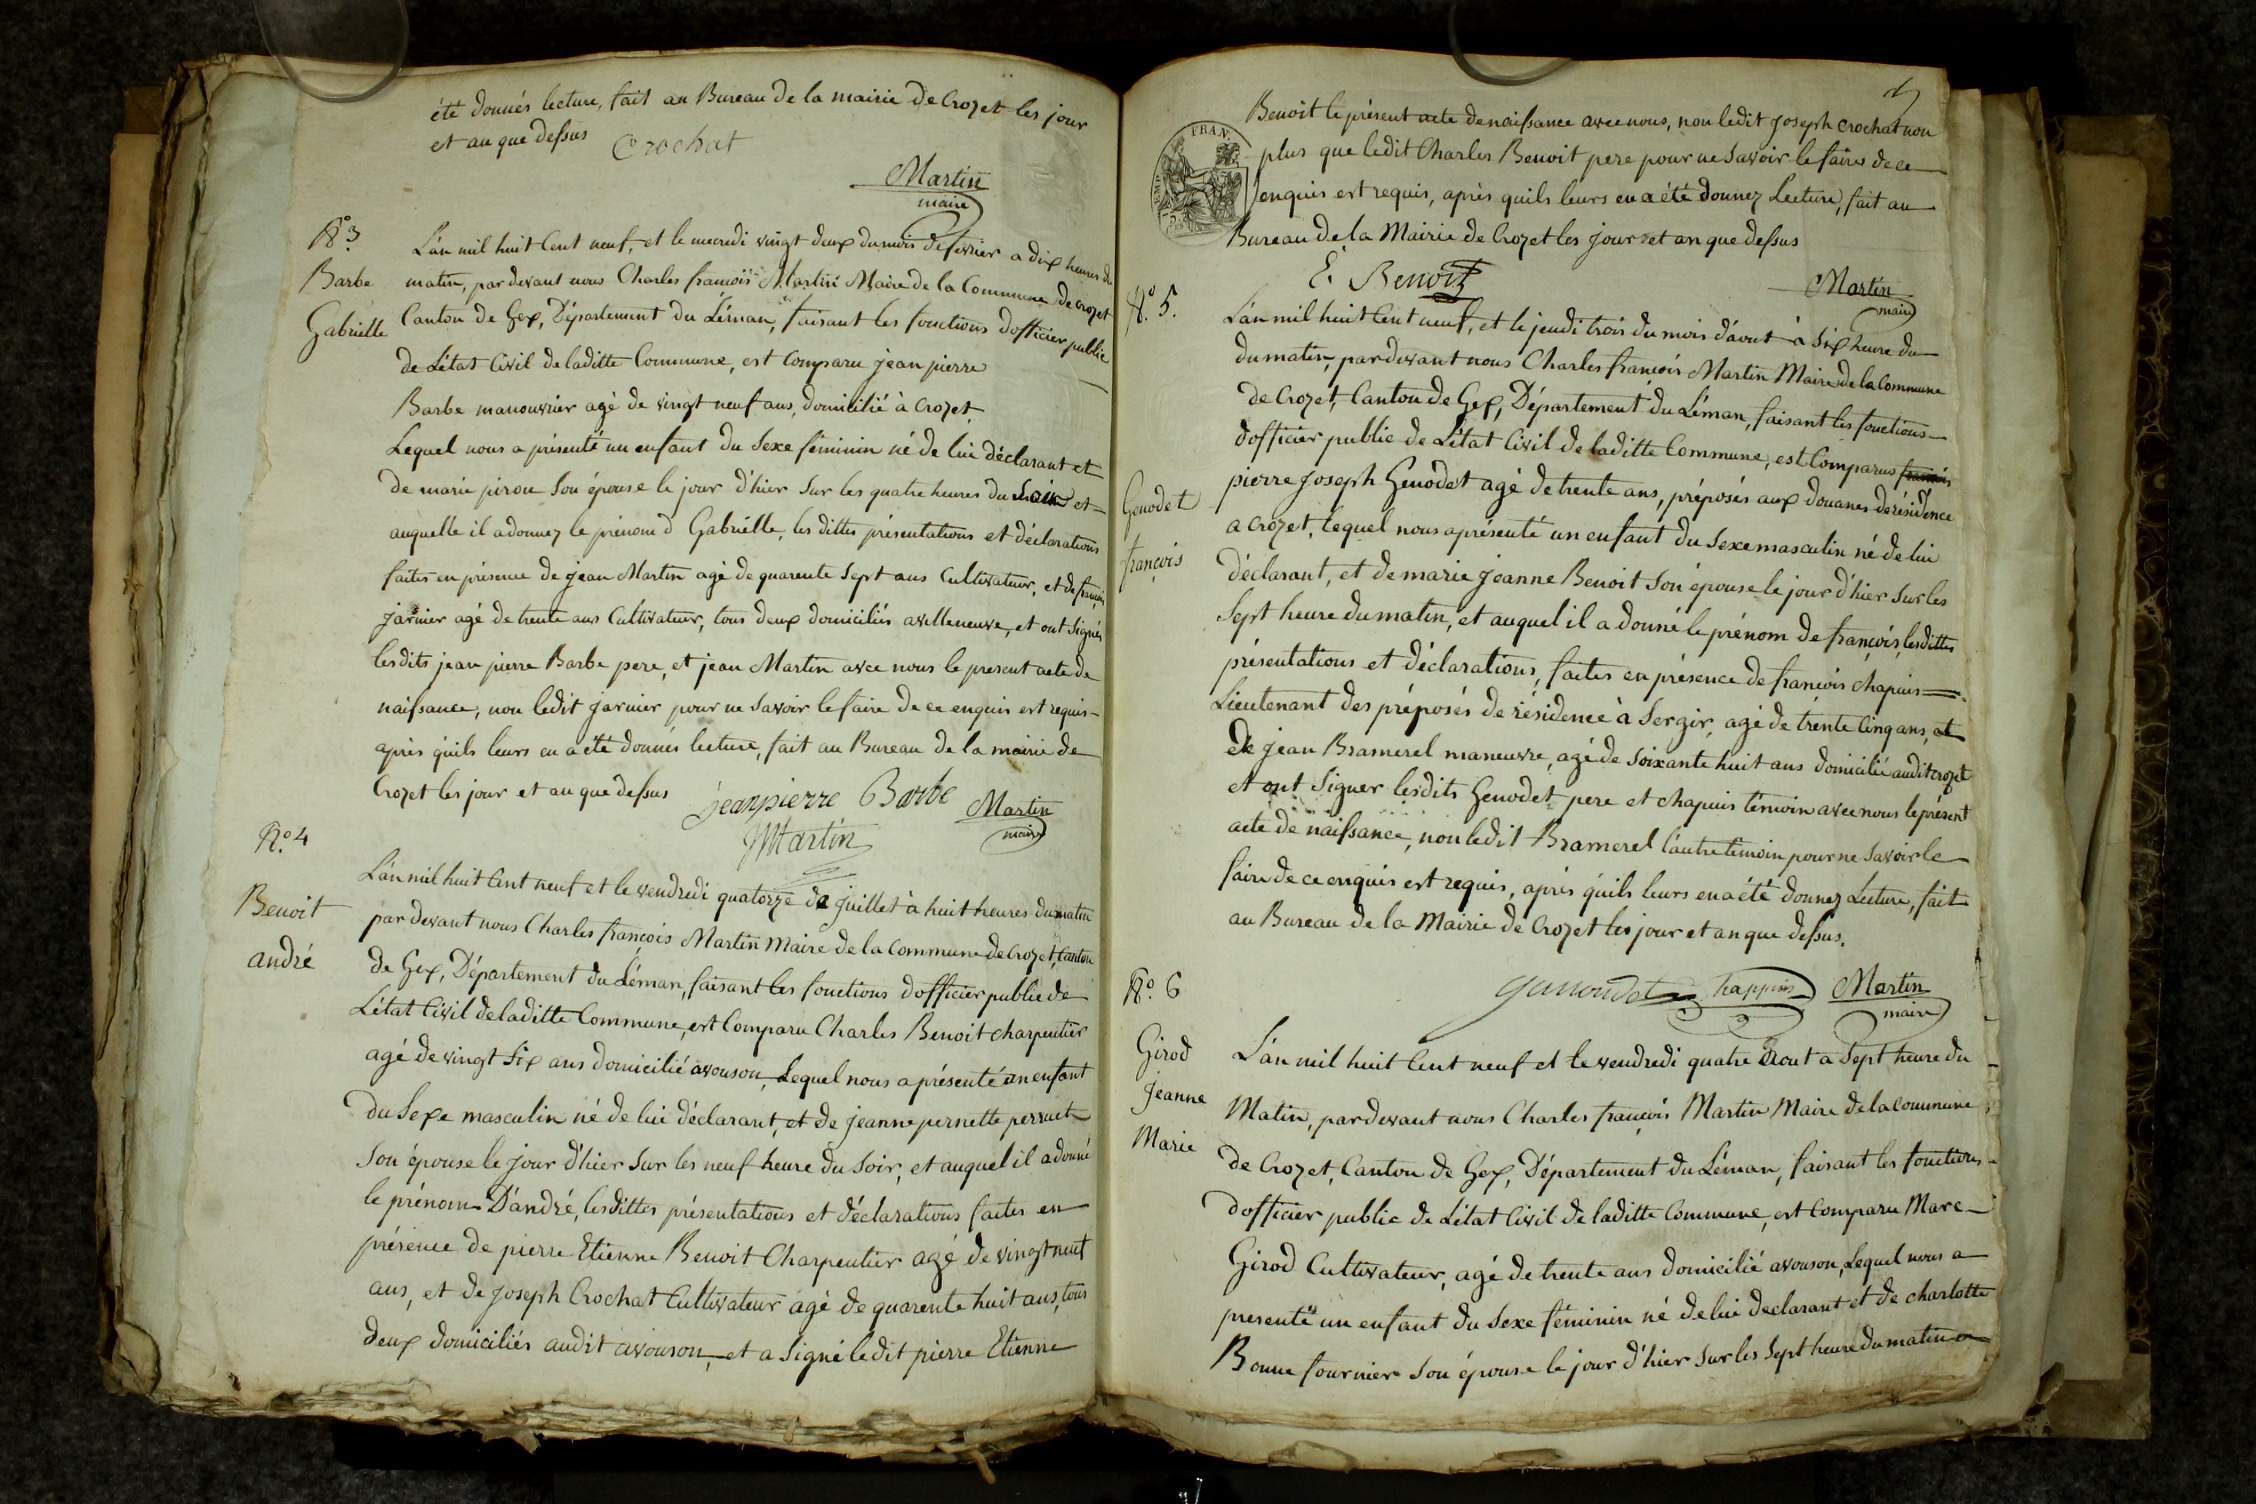 été donnés lecture, fait au Bureau de la mairie de Crozet les jour
et an que dessus Crochat
Martin
maire
N.º 3
Barbe
Gabrielle
L'an mil huit Cent neuf, et le mecredi vingt deux du mois de fevrier a dix heures du
matin, par devant nous Charles françois Martin Maire de la Commune de Crozet
Canton de Gex, Département du Léman, faisant les fonctions d'officier public
de L'état Civil de laditte Commune, est Comparu jean pierre
Barbe manouvrier agé de vingt neuf ans, domicilié à Crozet
Lequel nous a présenté un enfant du Sexe féminin né de lui déclarant et
de marie pirou Son épouse le jour d'hier Sur les quatre heures du Soir et
auquelle il a donnez le prénom d Gabriélle, les dittes présentations et déclarations
faites en présence de jean Martin agé de quarente Sept ans Cultivateur, et de françois
jarnier agé de trente ans Cultivateur, tous deux domiciliés avilleneuve, et ont Signés
lesdits jean pierre Barbe pere, et jean Martin avec nous le present acte de
naissance, non ledit jarnier pour ne Savoir le faire de ce enquis est requis
après quils leurs en a été donnés lecture, fait au Bureau de la mairie de
Crozet les jour et an que dessus
jeanpierre Barbe Martin
maire
JMartin
N.º 4
Benoit
andré
L'an mil huit Cent neuf et le vendredi quatorze de juillet à huit heures du matin
par devant nous Charles françois Martin Maire de la Commune de Crozet, Canton
de Gex, Département du Léman, faisant les fonctions d'officier public de
L'état Civil de laditte Commune, est Comparu Charles Benoit charpentier
agé de vingt Six ans domicilié avouson, Lequel nous a présenté un enfant
du Sexe masculin né de lui déclarant, et de jeanne pernette perruet
Son épouse le jour d'hier Sur les neuf heure du Soir, et auquel il a donné
le prénom D'andré, lesdittes présentations et déclarations faites en
présence de pierre Etienne Benoit Charpentier agé de vingt neuf
ans, et de Joseph Crochat Cultivateur agé de quarente huit ans, tous
deux domiciliés audit avouson, et a Signé ledit pierre Etienne
FRAN.
EMP.
Benoit le présent acte de naissance avec nous, non ledit Joseph Crochat non
plus que ledit Charles Benoit pere pour ne Savoir le faire de ce
enquis est requis, après quils leurs en a été donnez Lecture, fait au
Bureau de la Mairie de Crozet les jour et an que dessus
E. Benoit
Martin
maire
N.º 5.
Genodet
françois
L'an mil huit Cent neuf, et le jeudi trois du mois d'aout à Six heure du
du matin, par devant nous Charles françois Martin Maire de la Commune
de Crozet, Canton de Gex, Département du Léman, faisant les fonctions
d'officier public de L'état Civil de laditte Commune, est Comparus françois
pierre Joseph Genodet agé de trente ans, préposés aux douanes de résidence
a Crozet, Lequel nous a présenté un enfant du Sexe masculin né de lui
déclarant, et de marie jeanne Benoit Son épouse le jour d'hier Sur les
Sept heure du matin, et auquel il a donné le prénom de françois, lesdittes
présentations et déclarations, faites en présence de françois chapuis
Lieutenant des préposés de résidence à Sergir, agé de trente Cinq ans, et
de jean Bramerel maneuvre, agé de Soixante huit ans domicilié audit crozet
et ont Signer lesdits Genodet pere et chapuis témoin avec nous le présent
acte de naissance, non ledit Bramerel l'autre témoin pour ne Savoir le
faire de ce enquis est requis, après quils leurs en a été donnez Lecture, fait
au Bureau de la Mairie de Crozet les jour et an que dessus.
Martin
maire
N.º 6
Girod
Jeanne
Marie
L'an mil huit Cent neuf et le vendredi quatre aout a Sept heure du
Matin, par devant nous Charles françois Martin Maire de la commune
de Crozet, Canton de Gex, Département du Léman, faisant les fonctions
d'officier public de L'état Civil de laditte Commune, est Comparu Marc
Girod Cultivateur, agé de trente ans domicilié avouson, Lequel nous a
presenté un enfant du Sexe féminin né de lui declarant et de charlotte
Bonne fournier Son épouse le jour d'hier Sur les Sept heure du matin